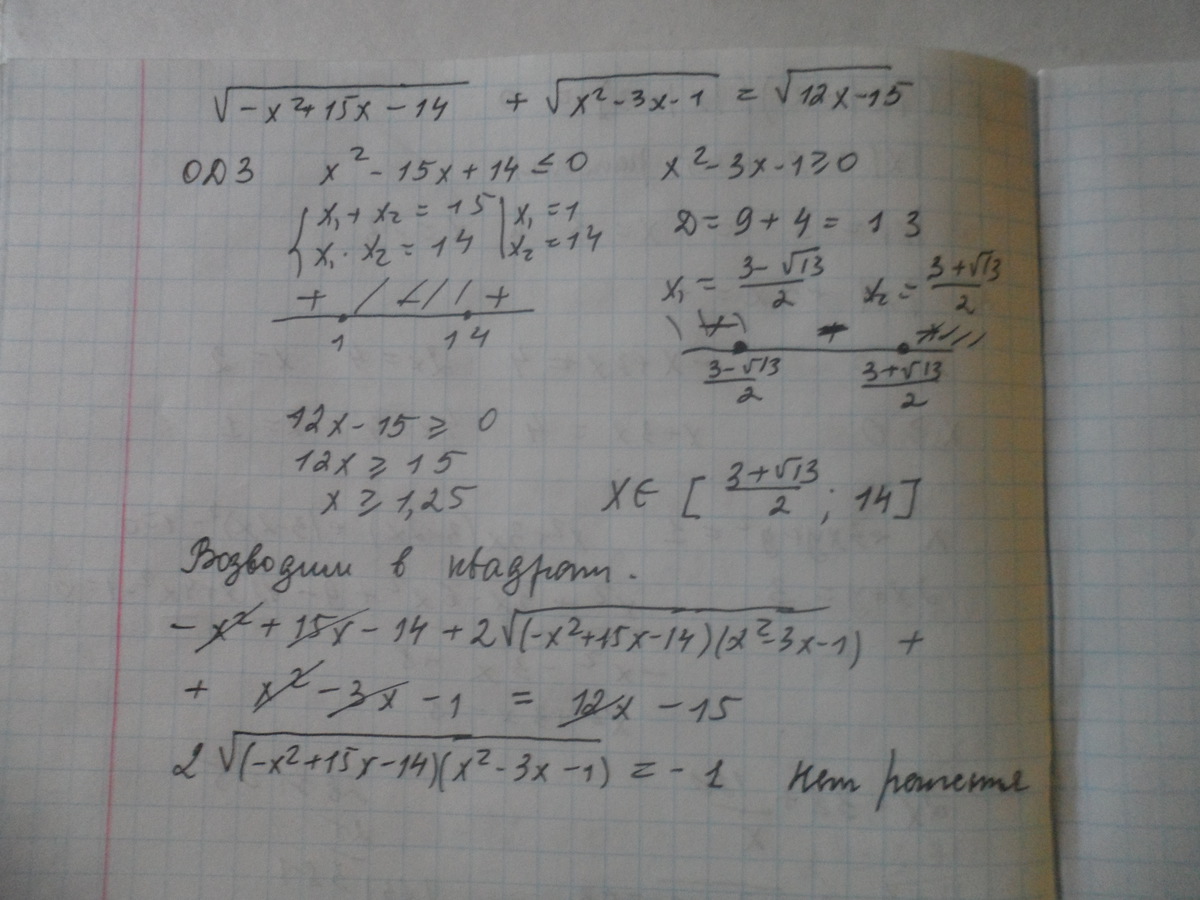 √(-x²+15x-14) + √(x²-3x-1) = √(12x-15)
ОДЗ x²-15x+14≤0 x²-3x-1≥0
{x₁+x₂=15 | x₁=1 Д=9+4=13
{x₁·x₂=14 | x₂=14
x₁=(3-√13)/2 x₂=(3+√13)/2
+ +
1 14
(3-√13)/2 (3+√13)/2
12x-15≥0
12x≥15
x≥1,25 X∈[(3+√13)/2; 14]
Возводим в квадрат.
-x²+15x-14+2√((-x²+15x-14)(x²-3x-1)) +
+ x²-3x-1 = 12x-15
2√((-x²+15x-14)(x²-3x-1)) = -1 нет решения